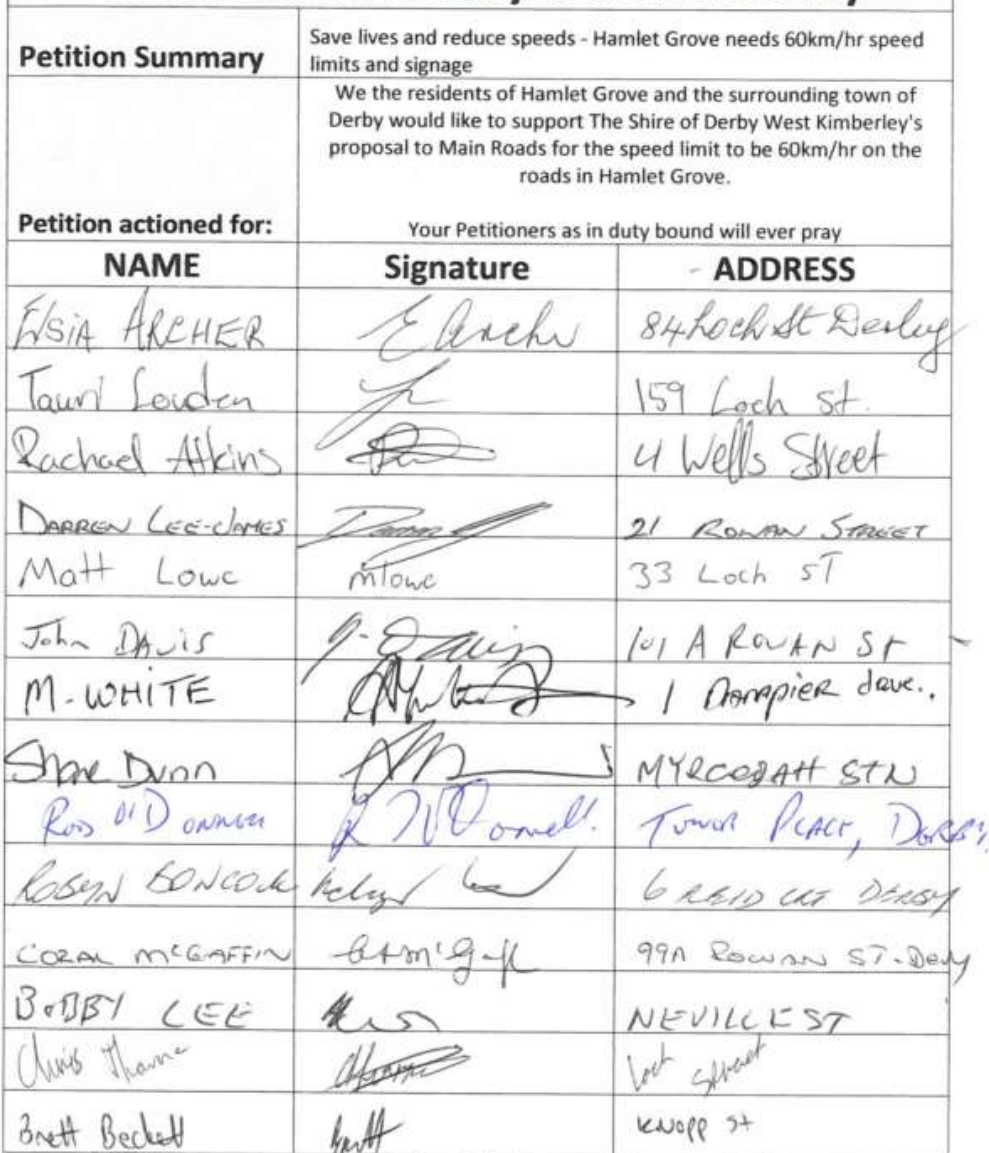 Petition Summary
Save lives and reduce speeds - Hamlet Grove needs 60km/hr speed
limits and signage
We the residents of Hamlet Grove and the surrounding town of
Derby would like to support The Shire of Derby West Kimberley's
proposal to Main Roads for the speed limit to be 60km/hr on the
roads in Hamlet Grove.
Petition actioned for:
Your Petitioners as in duty bound will ever pray
NAME Signature ADDRESS
Elsia ARCHER E Archer 84 Loch St Derby
Tauri Louden 159 Loch St.
Rachael Atkins 4 Wells Street
DARREN LEE-JAMES 21 ROWAN STREET
Matt Lowe mlowe 33 Loch ST
John DAVIS 101 A ROWAN ST
M. WHITE 1 DAMPIER
Shane Dunn STN
O'Donnell. PLACE, DERBY
ROBYN 6 DERBY
CORAL McGAFFIN 99A ROWAN ST. Derby
BOBBY LEE NEVILLE ST
Chris Street
Brett Beckett KNOPP St